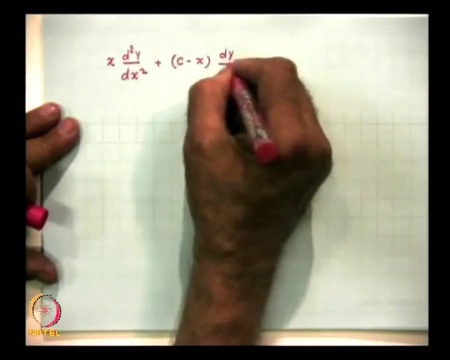 x d²y/dx² + (c - x) dy
NPTEL